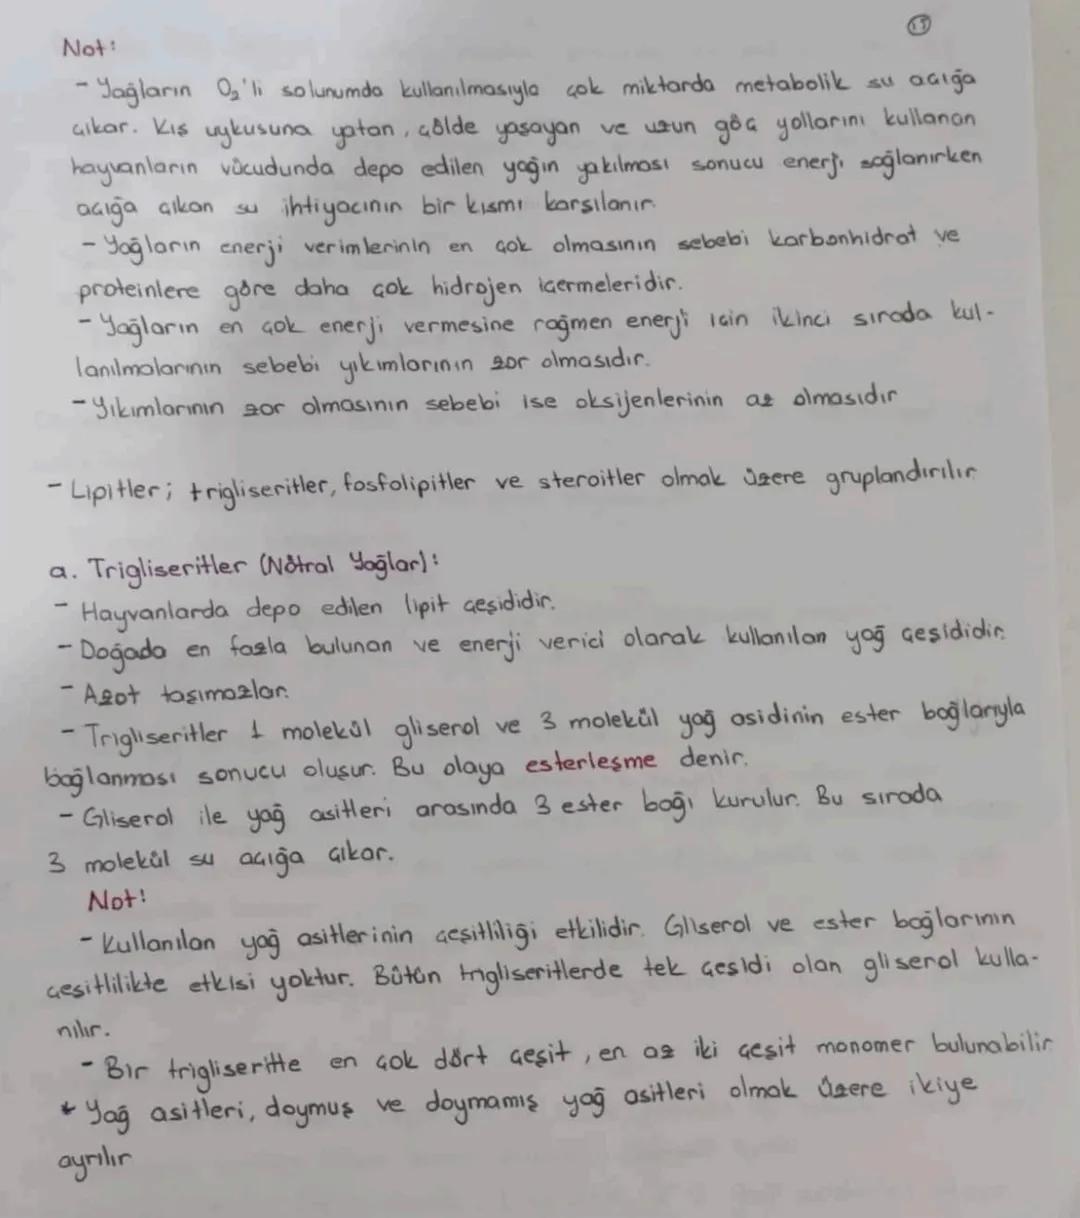 15
Not:
- Yağların O₂'li solunumda kullanılmasıyla çok miktarda metabolik su açığa
çıkar. Kış uykusuna yatan, çölde yaşayan ve uzun göç yollarını kullanan
hayvanların vücudunda depo edilen yağın yakılması sonucu enerji sağlanırken
açığa çıkan su ihtiyacının bir kısmı karşılanır.
- Yağların enerji verimlerinin en çok olmasının sebebi karbonhidrat ve
proteinlere göre daha çok hidrojen içermeleridir.
- Yağların en çok enerji vermesine rağmen enerji için ikinci sırada kul-
lanılmalarının sebebi yıkımlarının zor olmasıdır.
- Yıkımlarının zor olmasının sebebi ise oksijenlerinin az olmasıdır
- Lipitler; trigliseritler, fosfolipitler ve steroitler olmak üzere gruplandırılır.
a. Trigliseritler (Nötral Yağlar):
- Hayvanlarda depo edilen lipit çeşididir.
- Doğada en fazla bulunan ve enerji verici olarak kullanılan yağ çeşididir.
- Azot taşımazlar.
- Trigliseritler 1 molekül gliserol ve 3 molekül yağ asidinin ester bağlarıyla
bağlanması sonucu oluşur. Bu olaya esterleşme denir.
- Gliserol ile yağ asitleri arasında 3 ester bağı kurulur. Bu sırada
3 molekül su açığa çıkar.
Not:
- Kullanılan yağ asitlerinin çeşitliliği etkilidir. Gliserol ve ester bağlarının
çeşitlilikte etkisi yoktur. Bütün trigliseritlerde tek çeşidi olan gliserol kulla-
nılır.
- Bir trigliseritte en çok dört çeşit, en az iki çeşit monomer bulunabilir
* Yağ asitleri, doymuş ve doymamış yağ asitleri olmak üzere ikiye
ayrılır